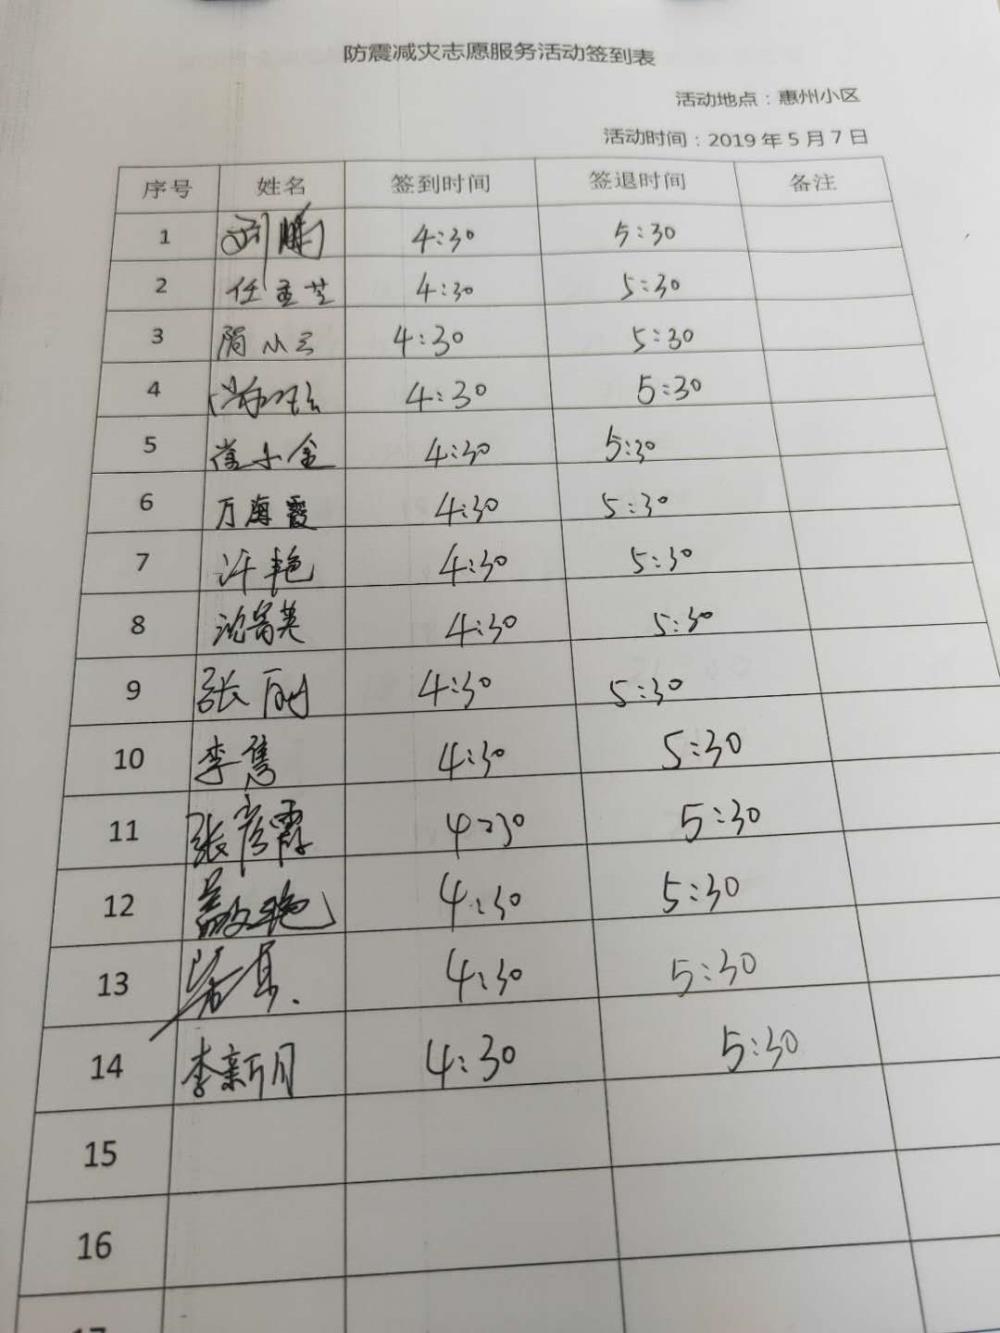 防震减灾志愿服务活动签到表
活动地点：惠州小区
活动时间：2019 年 5 月 7 日
序号 姓名 签到时间 签退时间 备注
1 刘鹏 4:30 5:30
2 任孟芝 4:30 5:30
3 隋小云 4:30 5:30
4 4:30 5:30
5 小金 4:30 5:30
6 万海霞 4:30 5:30
7 许艳 4:30 5:30
8 沈菁英 4:30 5:30
9 张丽 4:30 5:30
10 李隽 4:30 5:30
11 张彦霞 4:30 5:30
12 4:30 5:30
13 4:30 5:30
14 李新月 4:30 5:30
15
16
17